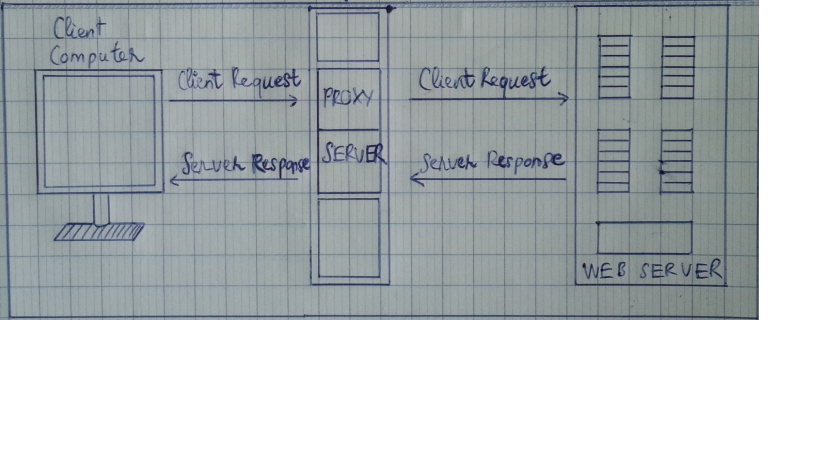 Client
Computer
Client Request
Server Response
PROXY
SERVER
Client Request
Server Response
WEB SERVER